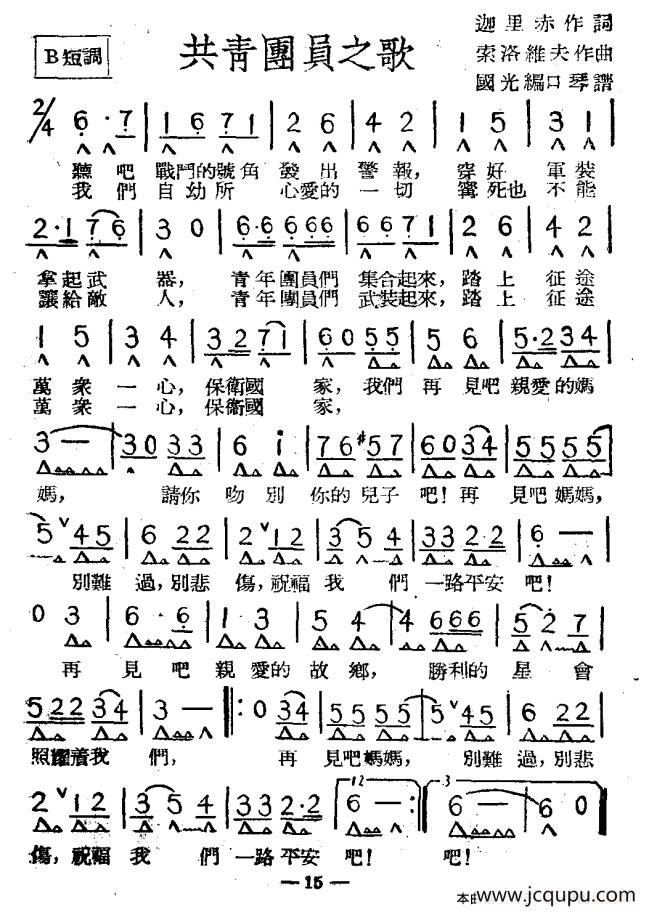 B短調
共青團員之歌
迦里赤作詞
索洛維夫作曲
國光編口琴譜
2/4 6·7 | 1 6 7 1 | 2 6 | 4 2 | 1 5 | 3 1 |
聽吧 戰鬥的號角 發出 警報， 穿好 軍裝
我們 自幼所 心愛的 一切 寗死也 不能
2·1 7 6 | 3 0 | 6·6 6 6 6 | 6 6 7 1 | 2 6 | 4 2 |
拿起武 器， 青年團員們 集合起來，踏上 征途
讓給敵 人， 青年團員們 武裝起來，踏上 征途
1 5 | 3 4 | 3 2 7 1 | 6 0 5 5 | 5 6 | 5·2 3 4 |
萬衆 一心，保衛國 家，我們 再見吧 親愛的媽
萬衆 一心，保衛國 家，
3 — | 3 0 3 3 | 6 i | 7 6 #5 7 | 6 0 3 4 | 5 5 5 5 |
媽， 請你 吻別 你的兒子 吧！再 見吧媽媽，
5 ∨ 4 5 | 6 2 2 | 2 ∨ 1 2 | 3 5 4 | 3 3 2·2 | 6 — |
別難 過，別悲 傷，祝福 我們 一路平安 吧！
0 3 | 6·6 | 1 3 | 5 4 | 4 6 6 6 | 5 2 7 |
再 見吧 親愛的 故鄉， 勝利的 星會
5 2 2 3 4 | 3 — :| 0 3 4 | 5 5 5 5 | 5 ∨ 4 5 | 6 2 2 |
照耀着我 們， 再 見吧媽媽， 別難 過，別悲
2 ∨ 1 2 | 3 5 4 | 3 3 2·2 | 12 6 — :| 3 6 — | 6 0 |
傷，祝福 我們 一路平安 吧！ 吧！
— 15 —
www.jcqupu.com